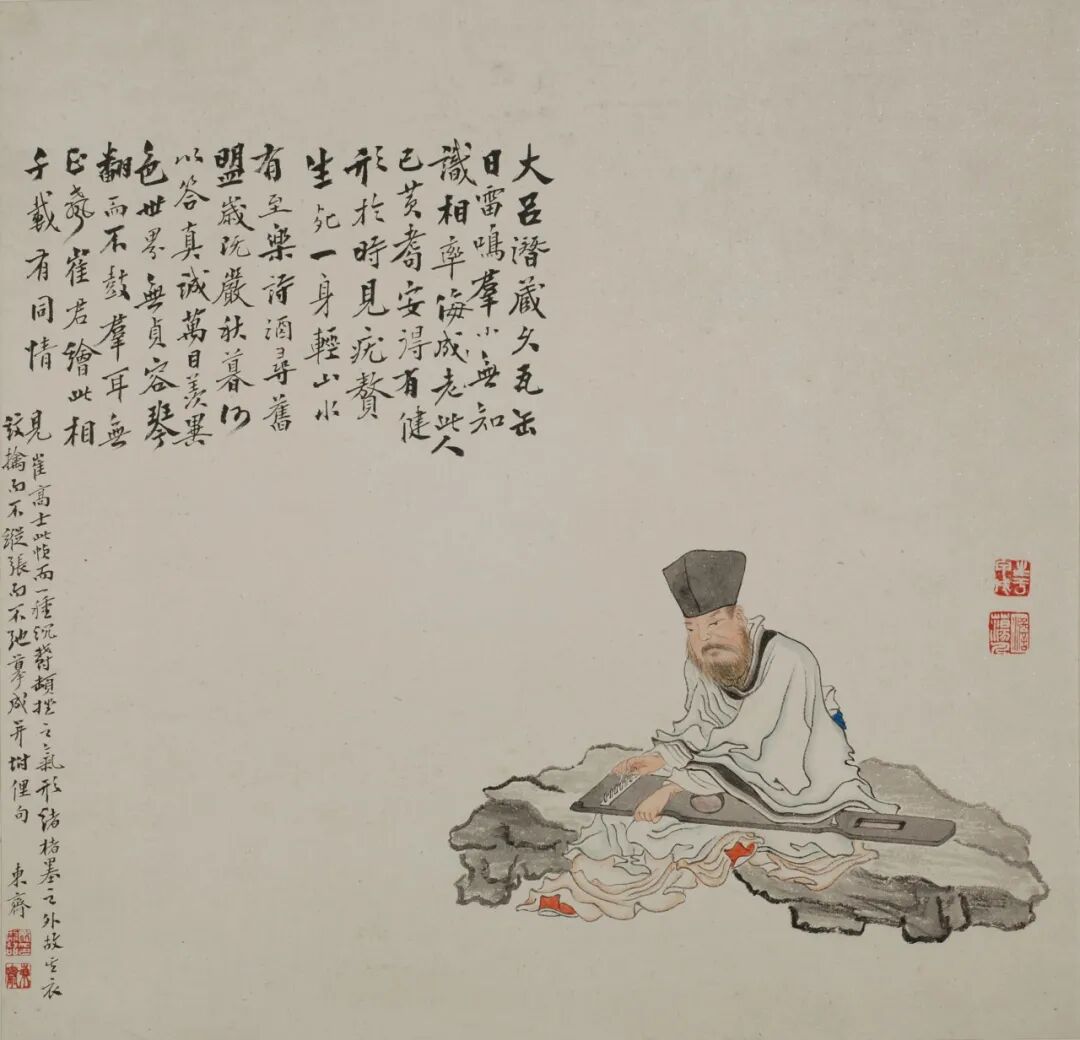 大呂潛藏久瓦缶
日雷鳴羣小無知
識相率侮成老此人
已黃耇安得有健
形於時見疣贅
生死一身輕山水
有至樂詩酒尋舊
盟歲況嚴秋暮何
以答真誠萬目羨異
色世界無貞容琴
翻而不鼓羣耳無
正聲崔君繪此相
千載有同情
見崔高士此幀而一種沉鬱頓挫之氣形諸楮墨之外故其衣
紋擒而不縱張而不弛摹成并坿俚句 東齋